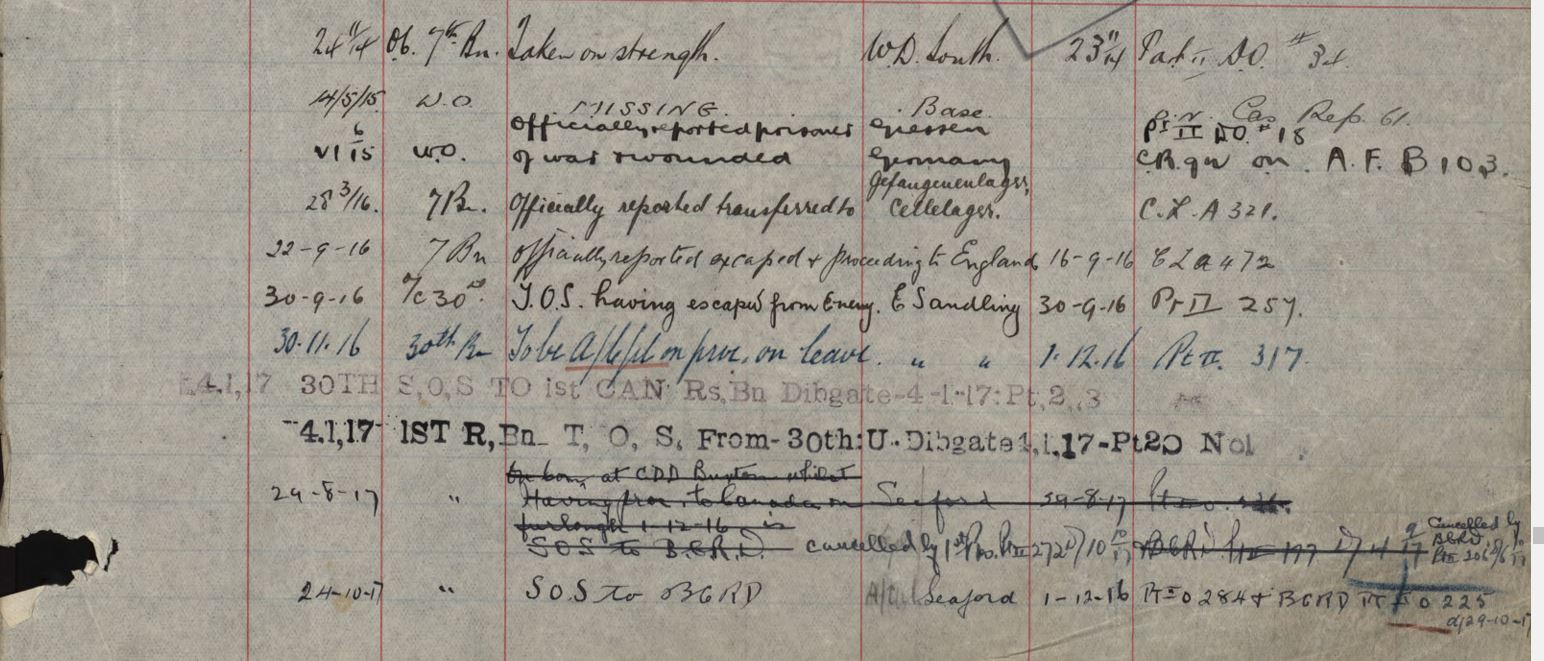 24 11/14 Ob. 7th Bn. Taken on strength. W.D. South. 23 11/14 Part II D.O. # 34.
14/5/15 W.O. MISSING. Base. Cas Rep. 61.
Officially reported prisoner Giessen Pt II DO. # 18
6
VI 15 W.O. of war & wounded Germany C.R. qu on A.F. B 103.
Gefangenenlager,
28 3/16. 7 Bn. Officially reported transferred to Cellelager. C.L.A 321.
22-9-16 7 Bn officially reported excaped & proceeding to England 16-9-16 C L a 472
30-9-16 O/c 30th. T.O.S. having escaped from Enemy. E Sandling 30-9-16 Pt II 257.
30.11.16 30th Bn To be A/Cpl on proc. on leave. " " 1.12.16 Pt II. 317.
4.1,17 30TH S,O,S TO ist CAN Rs,Bn Dibgate-4-1-17:Pt,2,,3
4.1,17 1ST R,Bn_ T, O, S, From-30th:U-Dibgate4,1.17-Pt2O No1
at CDD Buxton whilst
29-8-17 " Having proc. to Canada on Seaford 29-8-17 Pt II O.
furlough 1-12-16 is
SOS to B.C.R.D. cancelled by 1st Res. Pt II 272 d/10 10/17 BCRD Pt II 177 Cancelled by
BCRD
24-10-17 " S.O.S to BCRD Seaford 1-12-16 Pt II O 284 & BCRD Pt II O 225
d/29-10-17